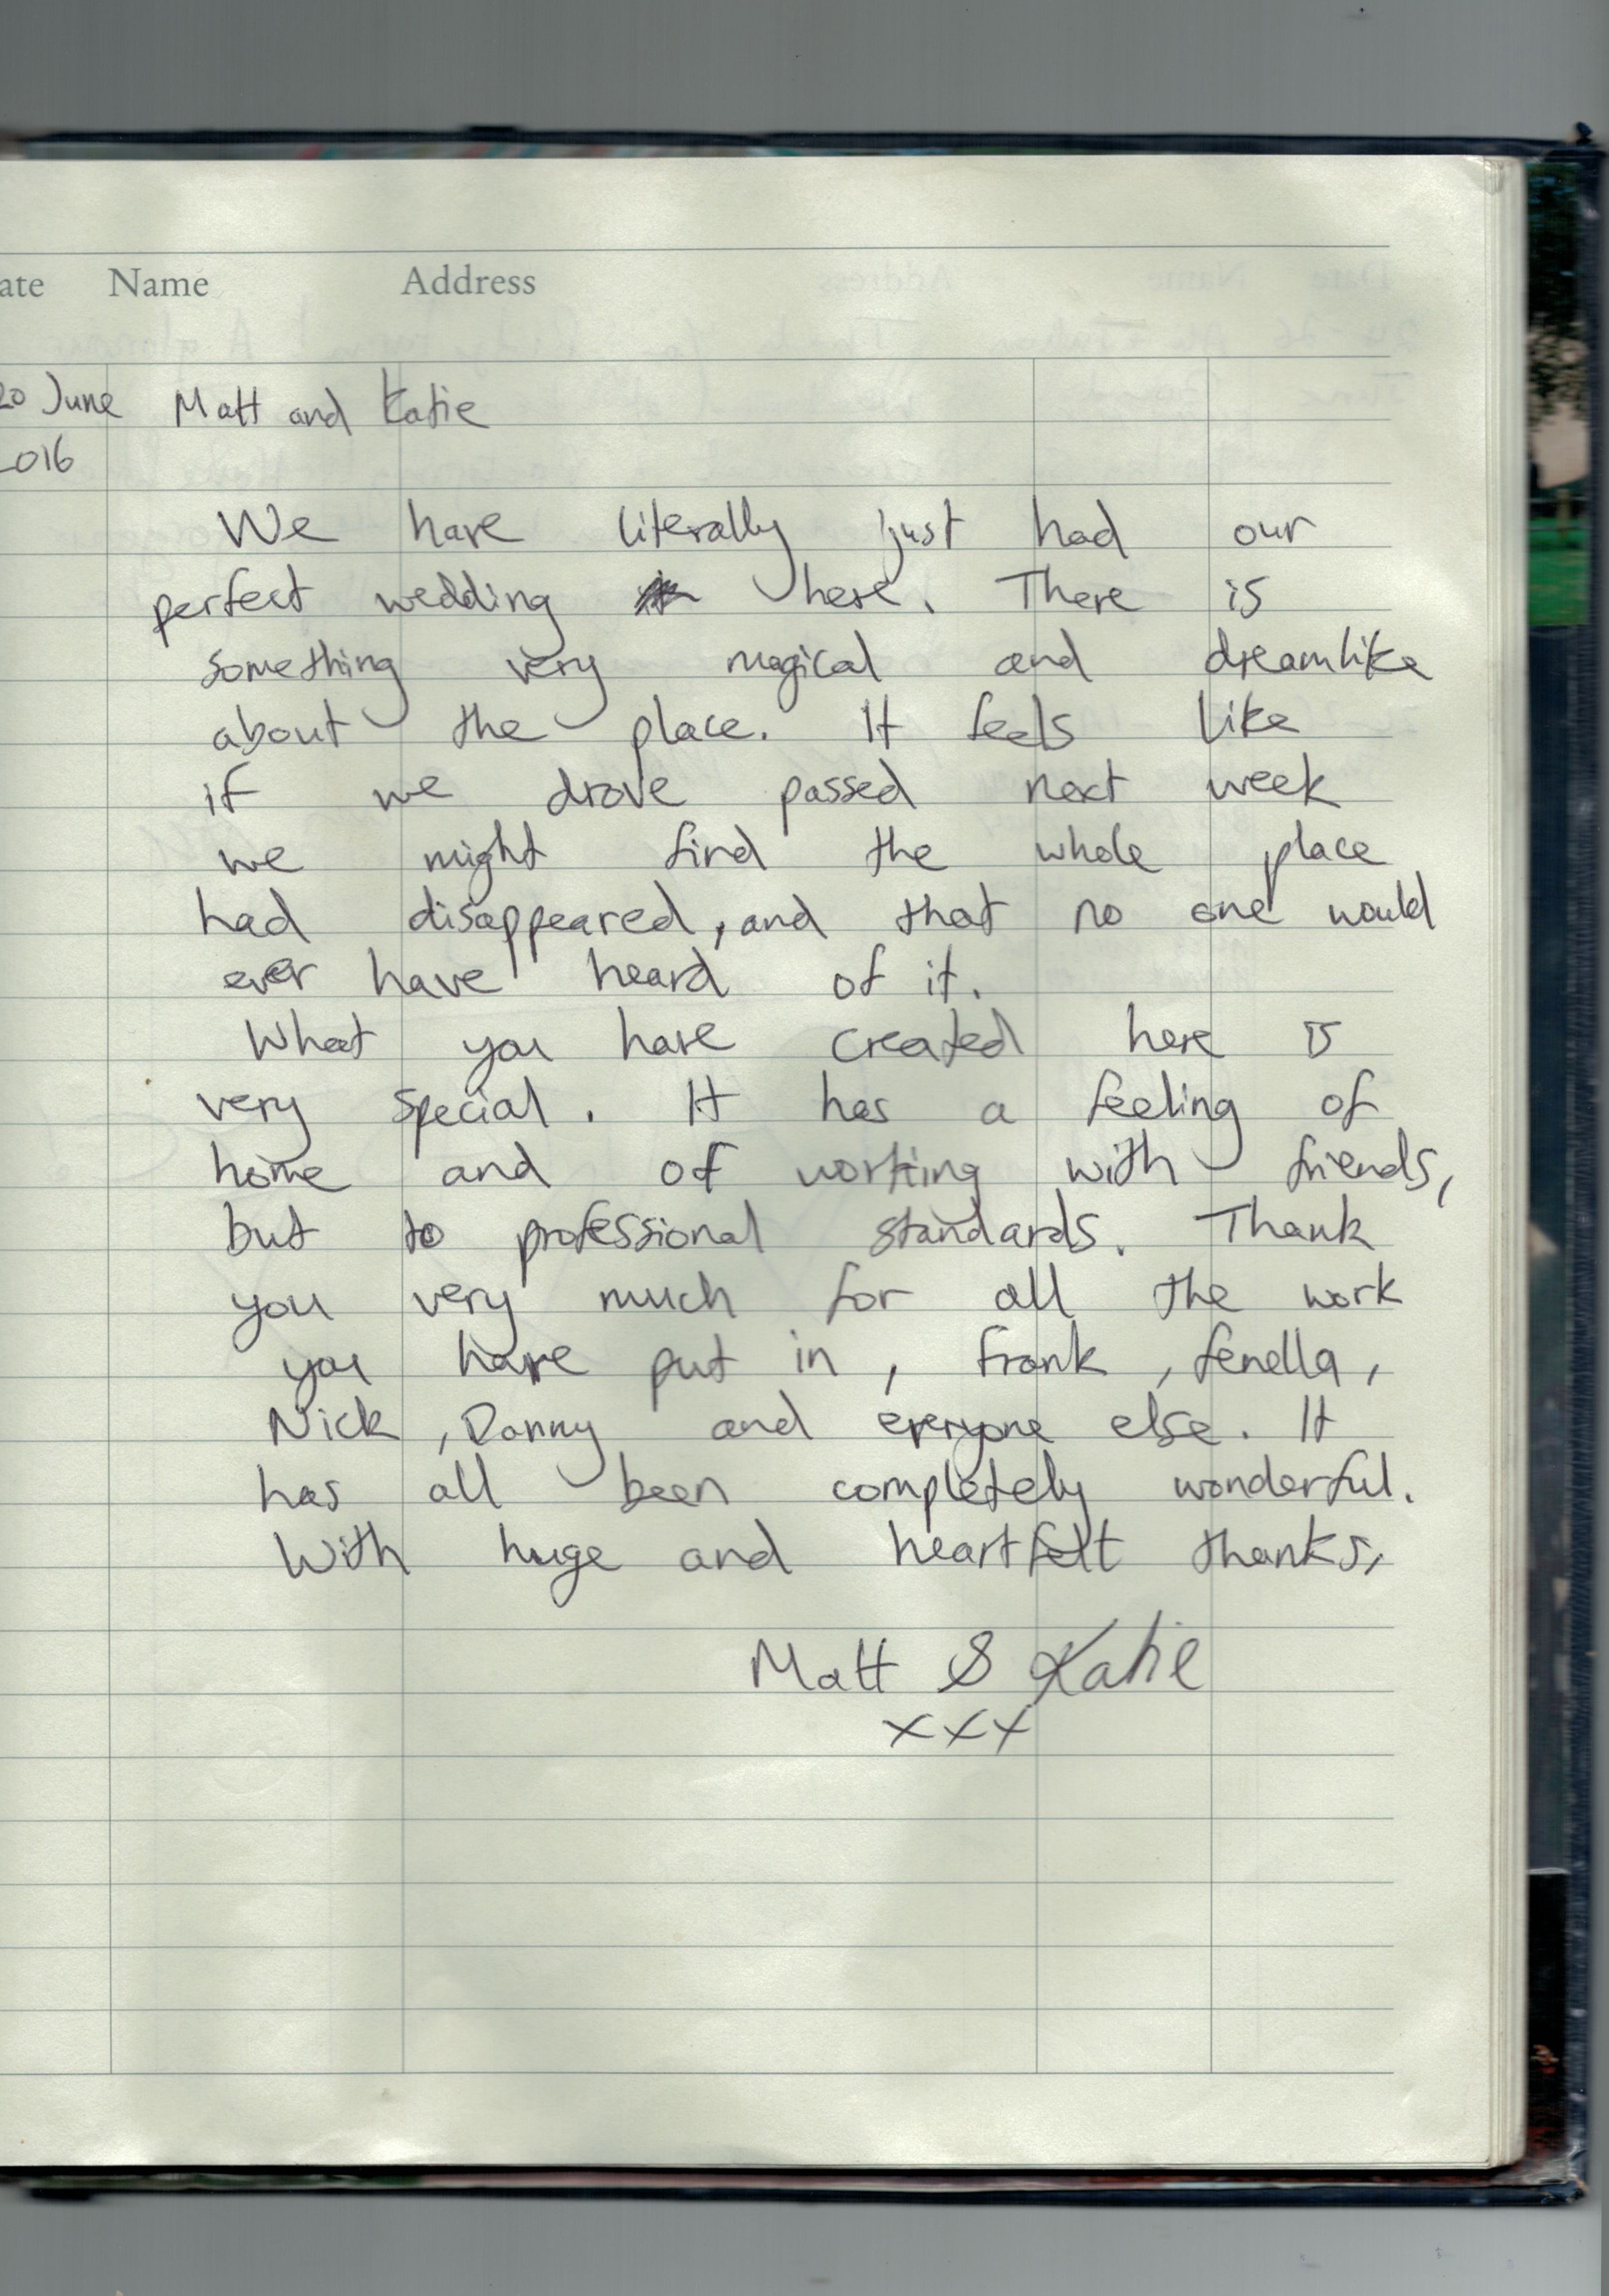 ate Name Address
20 June Matt and Katie
2016
We have literally just had our
perfect wedding here. There is
something very magical and dreamlike
about the place. It feels like
if we drove passed next week
we might find the whole place
had disappeared, and that no one would
ever have heard of it.
What you have created here is
very special. It has a feeling of
home and of working with friends,
but to professional standards. Thank
you very much for all the work
you have put in, Frank, Fenella,
Nick, Danny and everyone else. It
has all been completely wonderful.
With huge and heartfelt thanks,
Matt & Katie
xxx